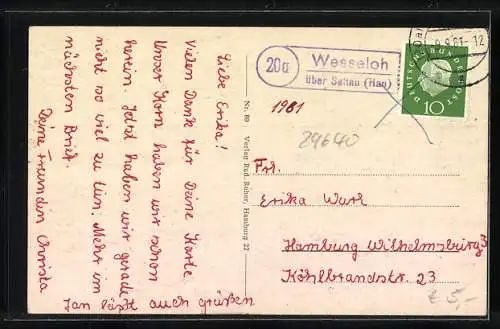 Liebe Erika!
Vielen Dank für Deine Karte.
Unser Korn haben wir schon
herein. Jetzt haben wir gerade
nicht so viel zu tun. Mehr im
nächsten Brief.
Deine Freundin Christa
Jan läßt auch grüßen
Nr. 89 Verlag Rud. Reher, Hamburg 22
20a
Wesseloh
über Soltau (Han)
9.61-12
DEUTSCHE BUNDESPOST
10
1961
29640
Frl.
Erika Warl
Hamburg Wilhelmsburg
Köhlbrandstr. 23
€ 5,-